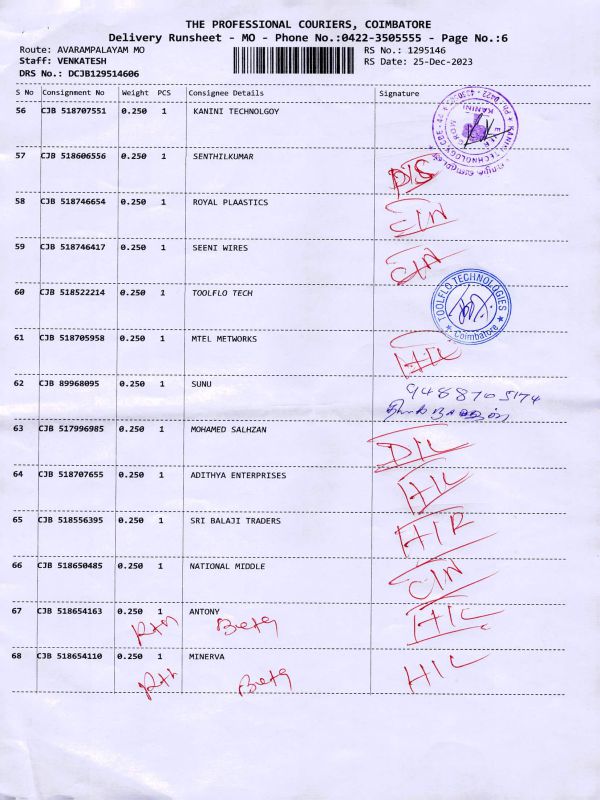 THE PROFESSIONAL COURIERS, COIMBATORE
Delivery Runsheet - MO - Phone No.:0422-3505555 - Page No.:6
Route: AVARAMPALAYAM MO RS No.: 1295146
Staff: VENKATESH RS Date: 25-Dec-2023
DRS No.: DCJB129514606
S No Consignment No Weight PCS Consignee Details Signature
56 CJB 518707551 0.250 1 KANINI TECHNOLGOY
57 CJB 518606556 0.250 1 SENTHILKUMAR
D/S
58 CJB 518746654 0.250 1 ROYAL PLAASTICS
CIN
59 CJB 518746417 0.250 1 SEENI WIRES
CIN
60 CJB 518522214 0.250 1 TOOLFLO TECH
TOOLFLO TECHNOLOGIES
* Coimbatore *
61 CJB 518705958 0.250 1 MTEL METWORKS
HIL
62 CJB 89968095 0.250 1 SUNU
9488705174
63 CJB 517996985 0.250 1 MOHAMED SALHZAN
DIL
64 CJB 518707655 0.250 1 ADITHYA ENTERPRISES
HIL
65 CJB 518556395 0.250 1 SRI BALAJI TRADERS
HIR
66 CJB 518650485 0.250 1 NATIONAL MIDDLE
CIN
67 CJB 518654163 0.250 1 ANTONY
HIL
68 CJB 518654110 0.250 1 MINERVA
HIL